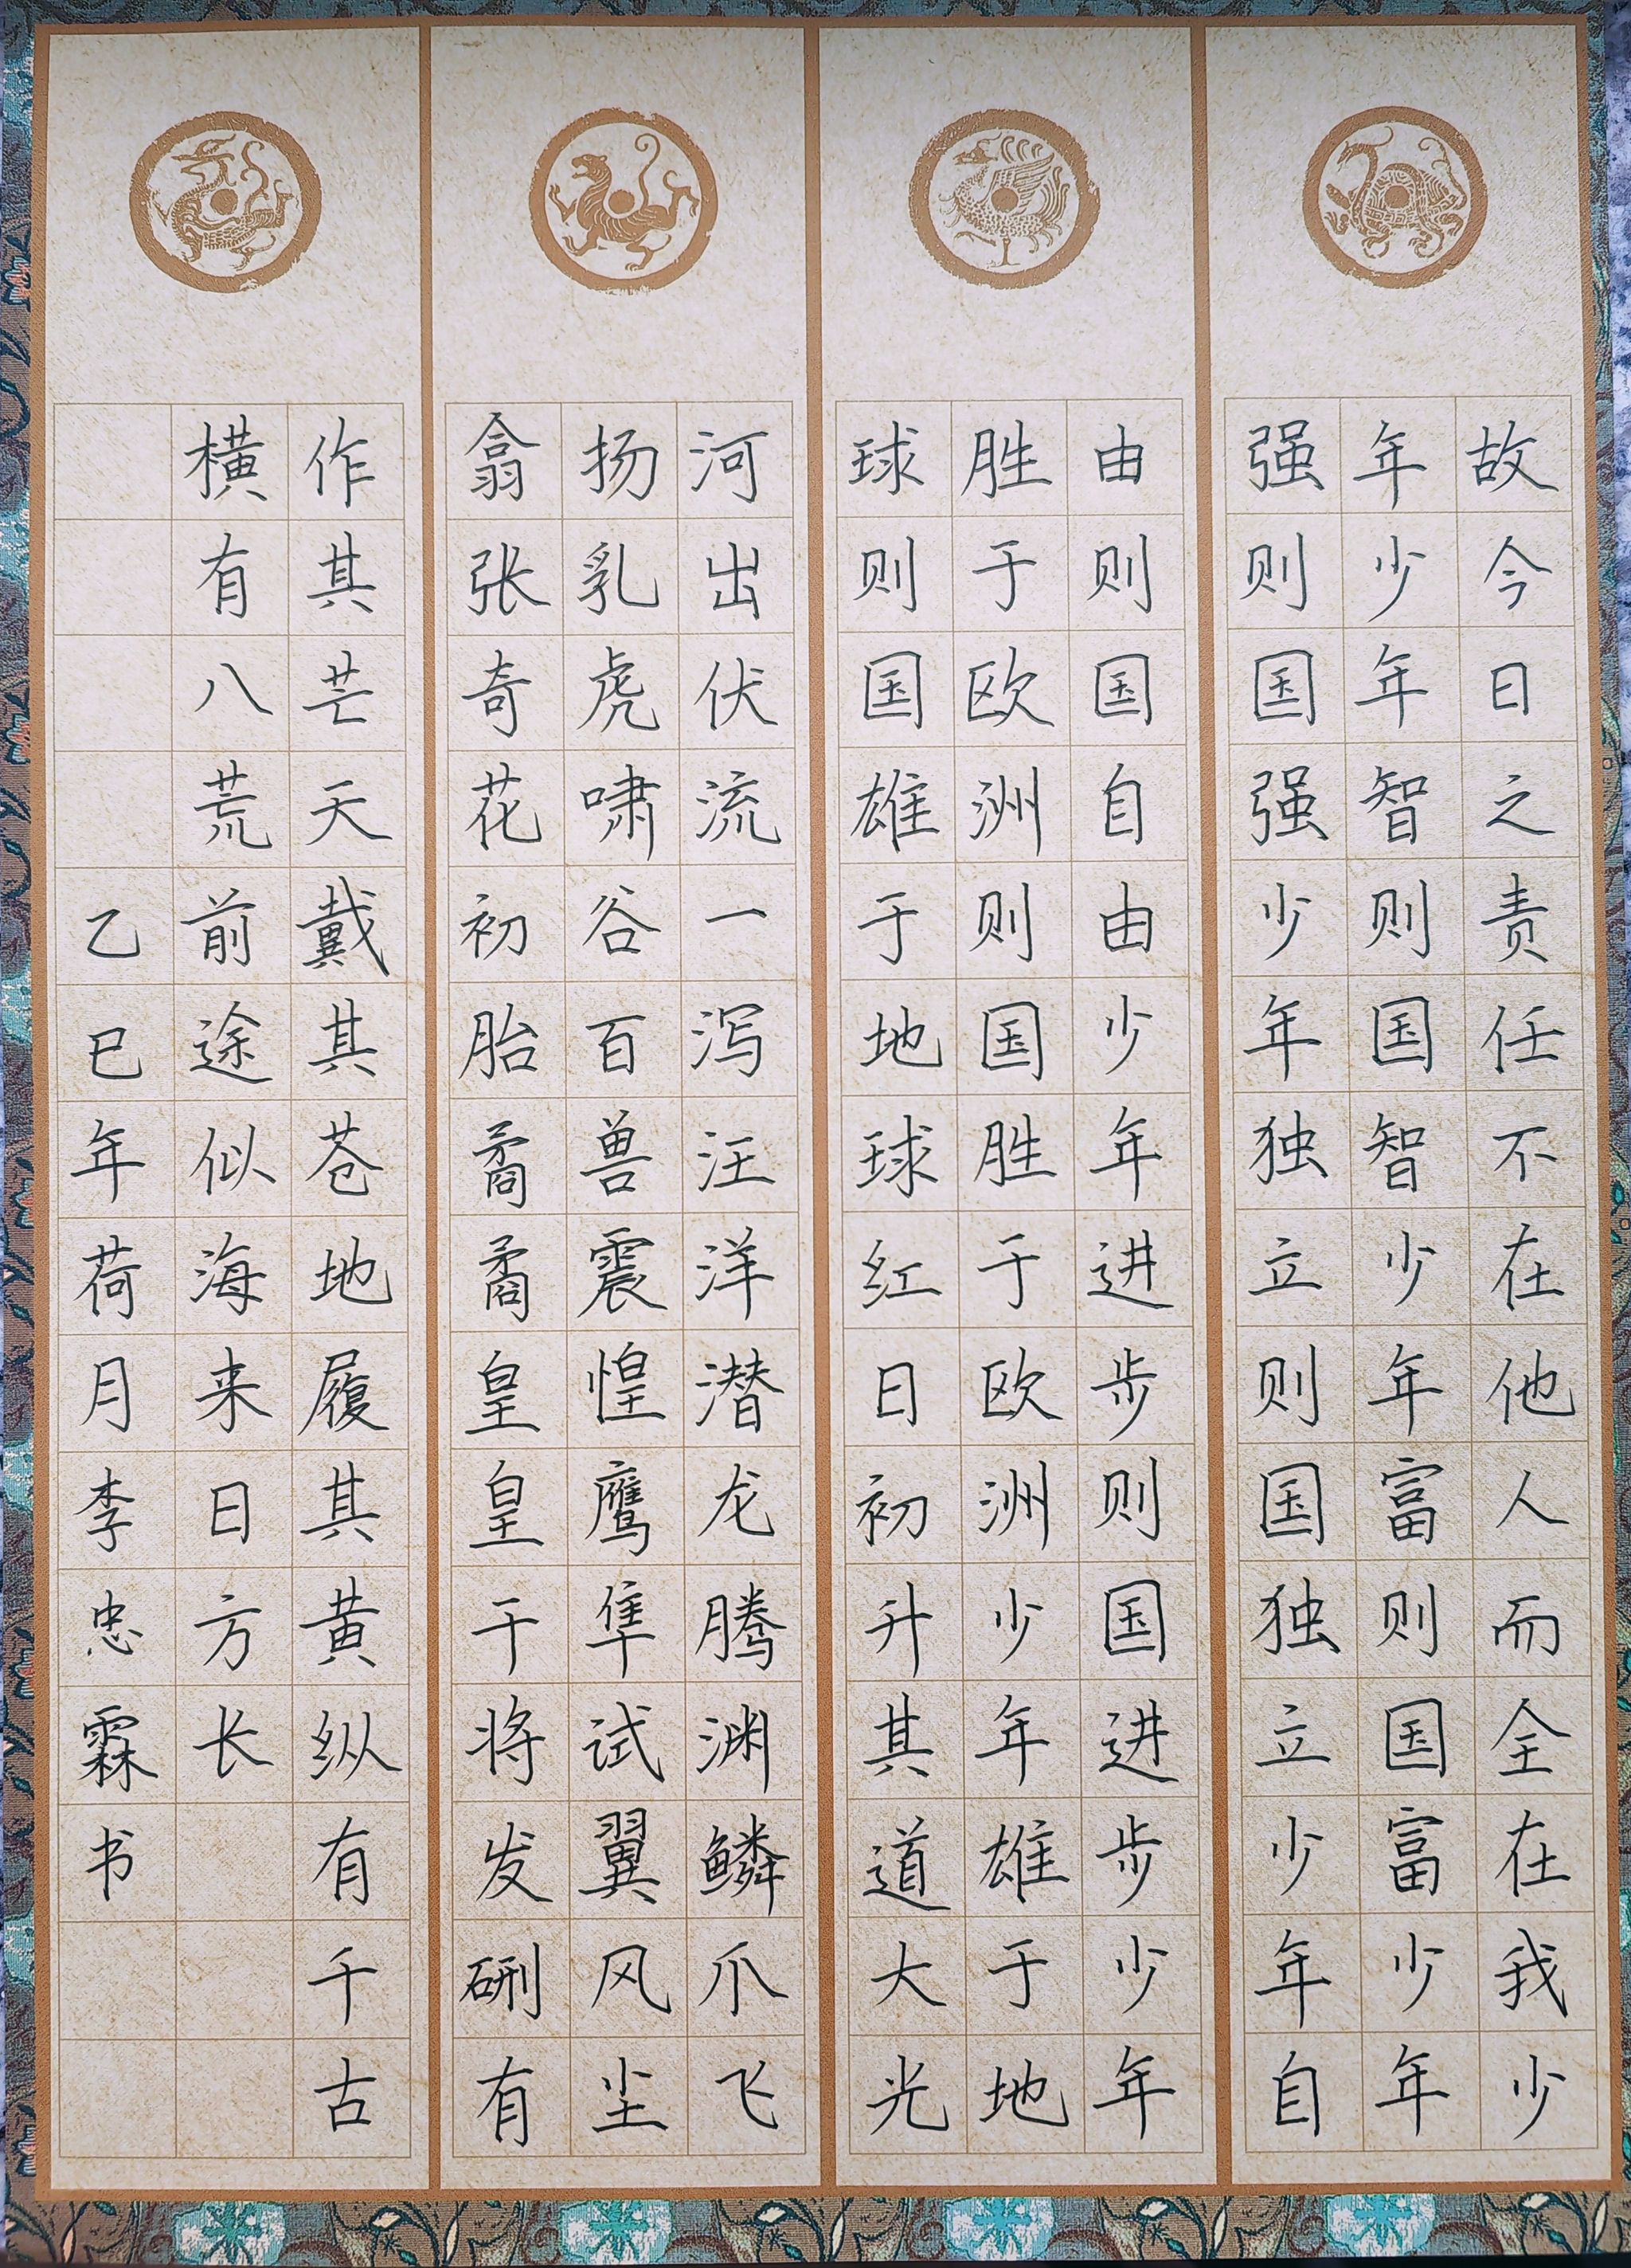 故今日之责任不在他人而全在我少
年少年智则国智少年富则国富少年
强则国强少年独立则国独立少年自
由则国自由少年进步则国进步少年
胜于欧洲则国胜于欧洲少年雄于地
球则国雄于地球红日初升其道大光
河出伏流一泻汪洋潜龙腾渊鳞爪飞
扬乳虎啸谷百兽震惶鹰隼试翼风尘
翕张奇花初胎矞矞皇皇干将发硎有
作其芒天戴其苍地履其黄纵有千古
横有八荒前途似海来日方长
乙巳年荷月李忠霖书